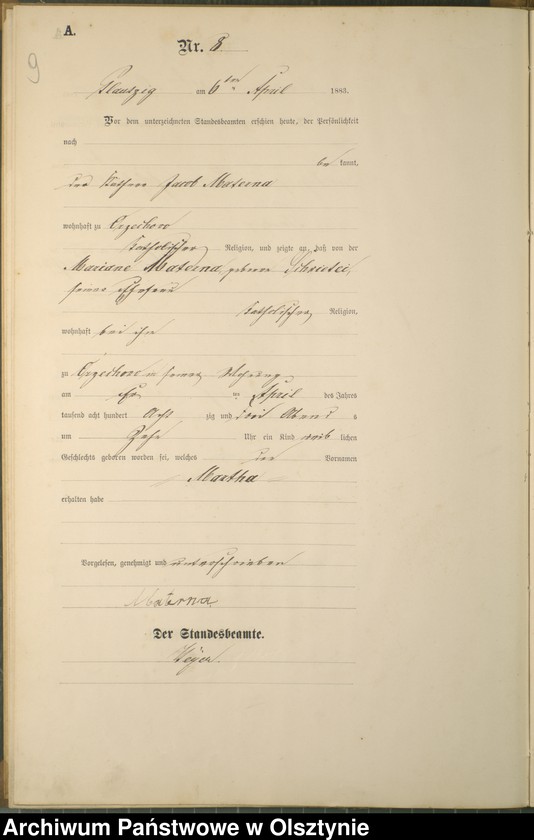 A.
Nr. 8
9
Plautzig am 6ten April 1883.
Vor dem unterzeichneten Standesbeamten erschien heute, der Persönlichkeit
nach
be kannt,
der Käthner Jacob Materna
wohnhaft zu
katholischer Religion, und zeigte an, daß von der
Mariane Materna geborne
seiner Ehefrau
katholischer Religion,
wohnhaft bei ihm
zu in seiner Wohnung
am ten April des Jahres
tausend acht hundert Acht zig und drei Abends
um Zehn Uhr ein Kind weib lichen
Geschlechts geboren worden sei, welches den Vornamen
Martha
erhalten habe
Vorgelesen, genehmigt und unterschrieben
Materna
Der Standesbeamte.
Archiwum Państwowe w Olsztynie